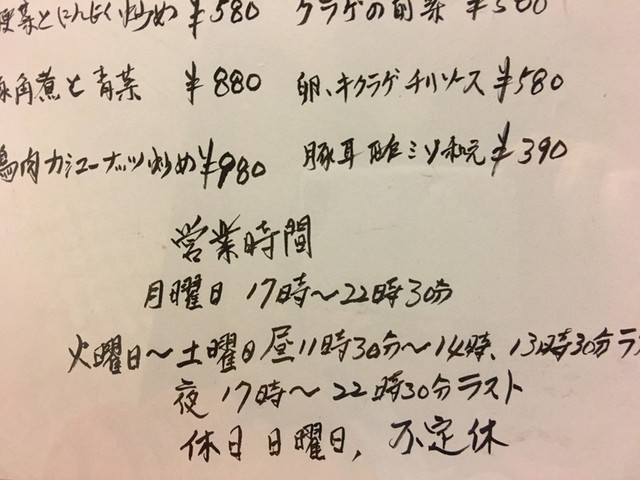 菜とにんにく炒め ¥580 クラゲの前菜 ¥500
角煮と青菜 ¥880 卵、キクラゲチリソース ¥580
鶏肉カシューナッツ炒め ¥980 豚耳 ミソ和え ¥390
営業時間
月曜日 17時～22時30分
火曜日～土曜日 昼11時30分～14時、13時30分ラ
夜 17時～22時30分ラスト
休日 日曜日，不定休